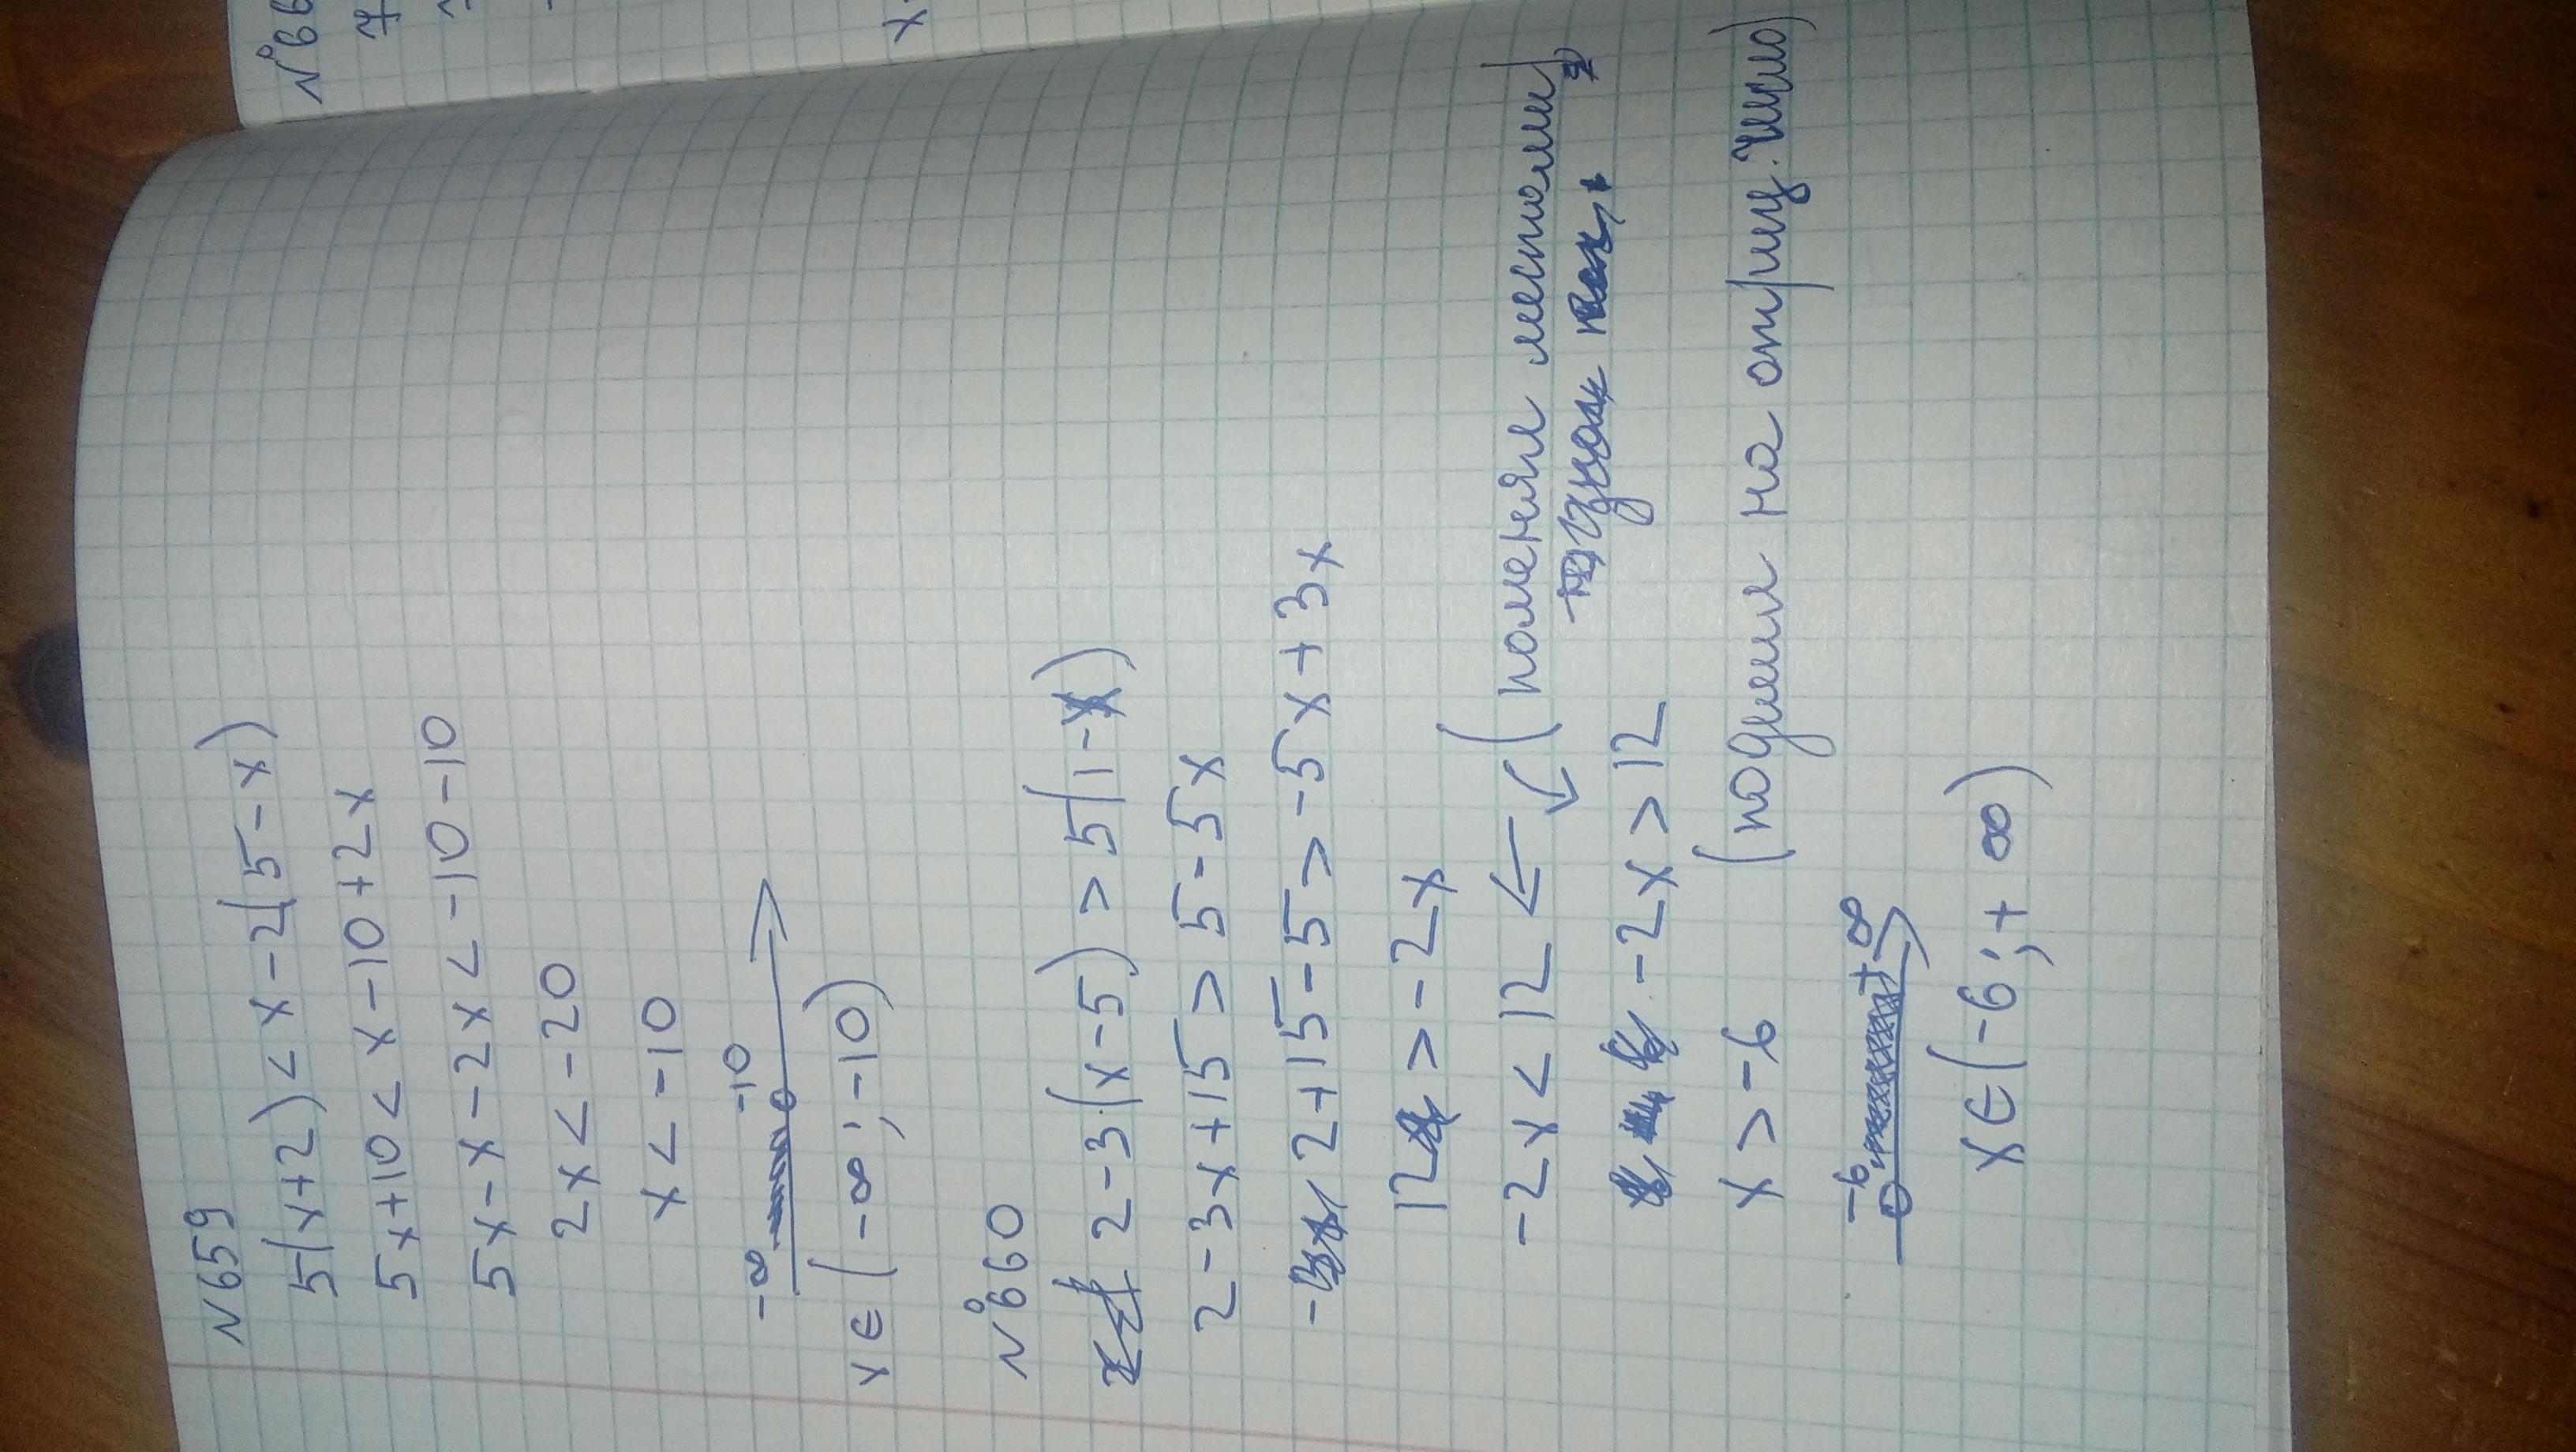 №66
7
x
N659
5(x+2)<x-2(5-x)
5x+10<x-10+2x
5x-x-2x<-10-10
2x<-20
x<-10
-∞ -10
x∈(-∞;-10)
№660
2-3(x-5)>5(1-x)
2-3x+15>5-5x
2+15-5>-5x+3x
12>-2x
-2x<12 ← (поменяли местами)
-2x>12
x>-6 (поделили на отриц. число)
-6 +∞
x∈(-6;+∞)